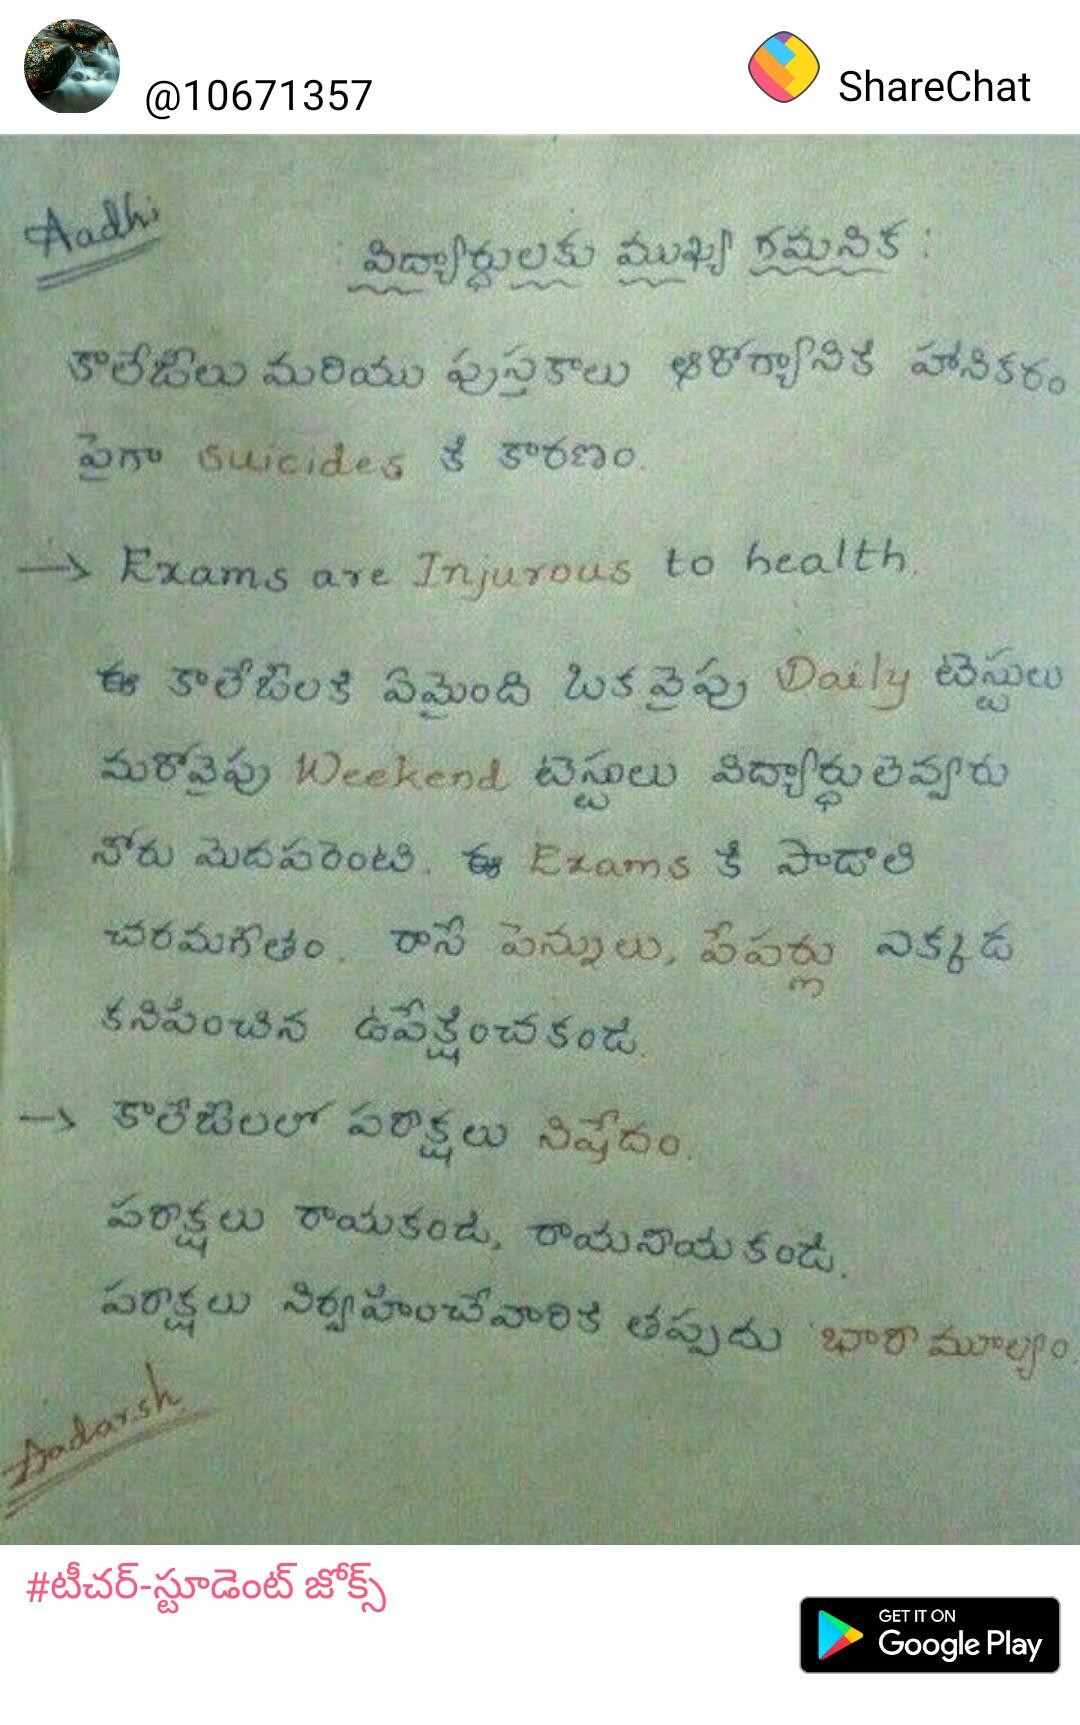 @10671357
ShareChat
Aadhi
విద్యార్థులకు ముఖ్య గమనిక :
కాలేజీలు మరియు పుస్తకాలు ఆరోగ్యానికి హానికరం
పైగా suicides కి కారణం.
→ Exams are Injurous to health.
ఈ కాలేజీలకి ఏమైంది ఒకవైపు Daily టెస్టులు
మరోవైపు Weekend టెస్టులు విద్యార్థులెవ్వారు
నోరు మెదపరెంటి. ఈ Exams కి పాడాలి
చరమగీతం. రాసే పెన్నులు, పేపర్లు ఎక్కడ
కనిపించిన ఉపేక్షించకండి.
→ కాలేజీలలో పరీక్షలు నిషేదం.
పరీక్షలు రాయకండి, రాయనీయకండి.
పరీక్షలు నిర్వహించేవారికి తప్పదు భారీ మూల్యం
Aadarsh
#టీచర్-స్టూడెంట్ జోక్స్
GET IT ON
Google Play